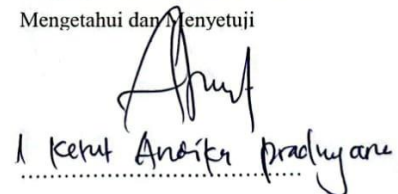 Mengetahui dan Menyetuji
I Ketut Andika Pradnyana